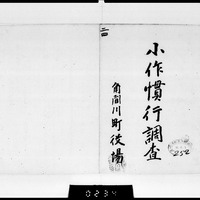 小作慣行調査
角間川町役場
二四
252
0234